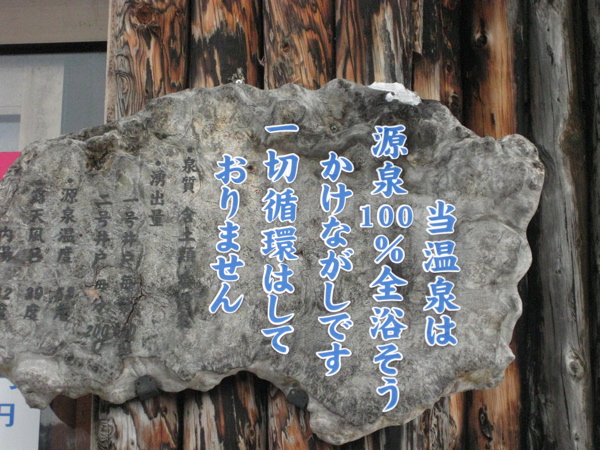 当温泉は
源泉100%全浴そう
かけながしです
一切循環はして
おりません
泉質
・湧出量
一号井戸
二号井戸
・源泉温度
・露天風呂
円